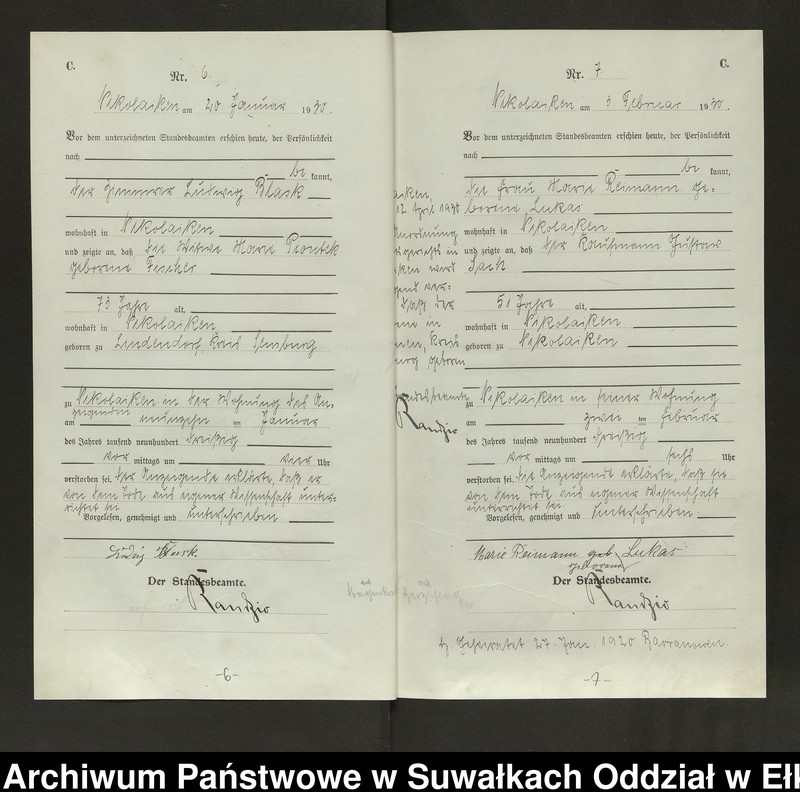 C.
Nr. 6
Nikolaiken am 20 Januar 1930.
Vor dem unterzeichneten Standesbeamten erschien heute, der Persönlichkeit
nach
be kannt,
der Zimmerer Ludwig Blask
wohnhaft in Nikolaiken
und zeigte an, daß die Witwe Marie Piontek
geborene Fischer
73 Jahre alt,
wohnhaft in Nikolaiken
geboren zu Lindendorf, Kreis Sensburg
zu Nikolaiken in der Wohnung des An-
zeigenden
am neunzehn ten Januar
des Jahres tausend neunhundert dreißig
vor mittags um vier Uhr
verstorben sei. Der Anzeigende erklärte, daß er
von dem Tode aus eigener Wissenschaft unter-
richtet sei
Vorgelesen, genehmigt und unterschrieben
Ludwig Blask
Der Standesbeamte.
Randzio
-6-
aiken,
12. April 1930
Anordnung
gerichts in
ken wird
ver:
daß der
in
Kreis
urg geboren
Standesbeamte
Randzio
C.
Nr. 7
Nikolaiken am 3. Februar 1930.
Vor dem unterzeichneten Standesbeamten erschien heute, der Persönlichkeit
nach
be kannt,
die Frau Marie Reimann ge-
borene Lukas
wohnhaft in Nikolaiken
und zeigte an, daß der Kaufmann Gustav
Jack
51 Jahre alt,
wohnhaft in Nikolaiken
geboren zu Nikolaiken
zu Nikolaiken in seiner Wohnung
am zwei ten Februar
des Jahres tausend neunhundert dreißig
vor mittags um sechs Uhr
verstorben sei. Die Anzeigende erklärte, daß sie
von dem Tode aus eigener Wissenschaft
unterrichtet sei.
Vorgelesen, genehmigt und unterschrieben.
Marie Reimann geb Lukas
geborene
Der Standesbeamte.
Randzio
Geheiratet 27. Jan. 1920
-7-
Archiwum Państwowe w Suwałkach Oddział w Ełk